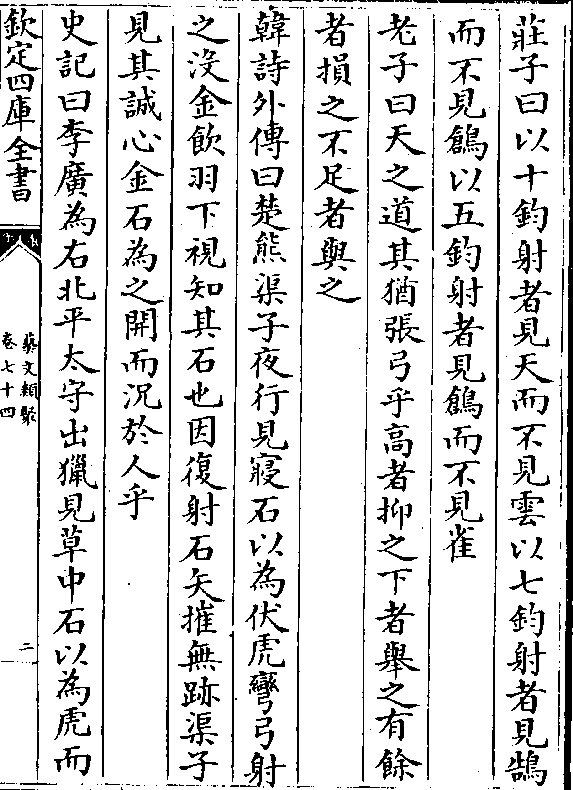 莊子曰以十鈞射者見天而不見雲以七鈞射者見鵠
而不見鶬以五鈞射者見鶬而不見雀
老子曰天之道其猶張弓乎高者抑之下者舉之有餘
者損之不足者與之
韓詩外傳曰楚熊渠子夜行見寢石以為伏虎彎弓射
之沒金飲羽下視知其石也因復射石矢摧無跡渠子
見其誠心金石為之開而況於人乎
史記曰李廣為右北平太守出獵見草中石以為虎而
欽定四庫全書
藝文類聚
卷七十四
二